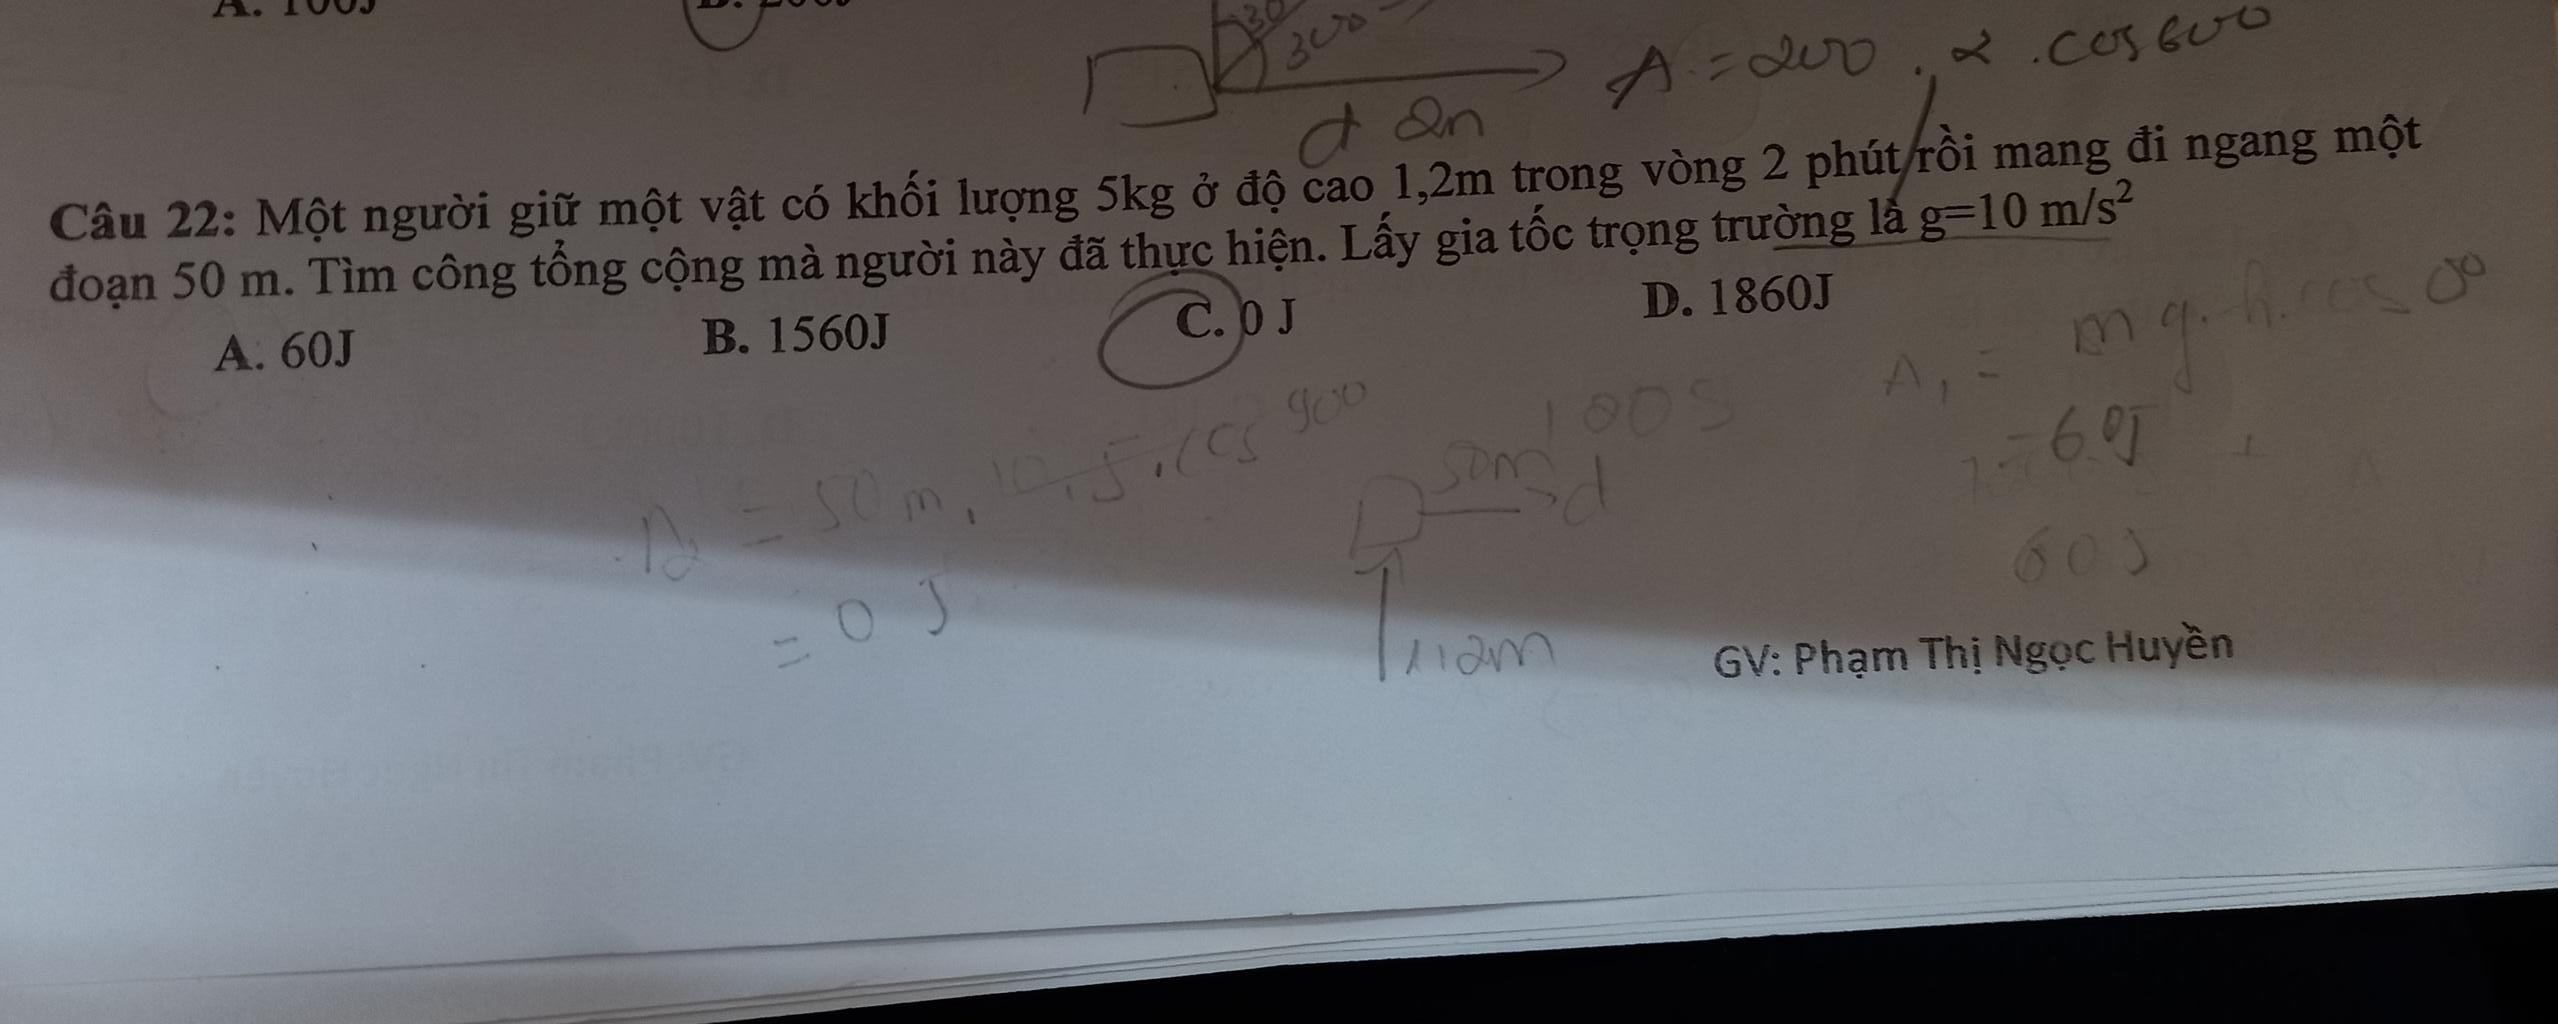 A. 100J
30
300
A = 200 . 2 . cos 600
d 2n
Câu 22: Một người giữ một vật có khối lượng 5kg ở độ cao 1,2m trong vòng 2 phút rồi mang đi ngang một
đoạn 50 m. Tìm công tổng cộng mà người này đã thực hiện. Lấy gia tốc trọng trường là g=10 m/s²
A. 60J B. 1560J C. 0 J D. 1860J
A₁ = mg.h.cos 0⁰
= 60J
60J
100J
A₂ = 50m.10.5.cos 90⁰
= 0 J
50m
d
1,2m
GV: Phạm Thị Ngọc Huyền